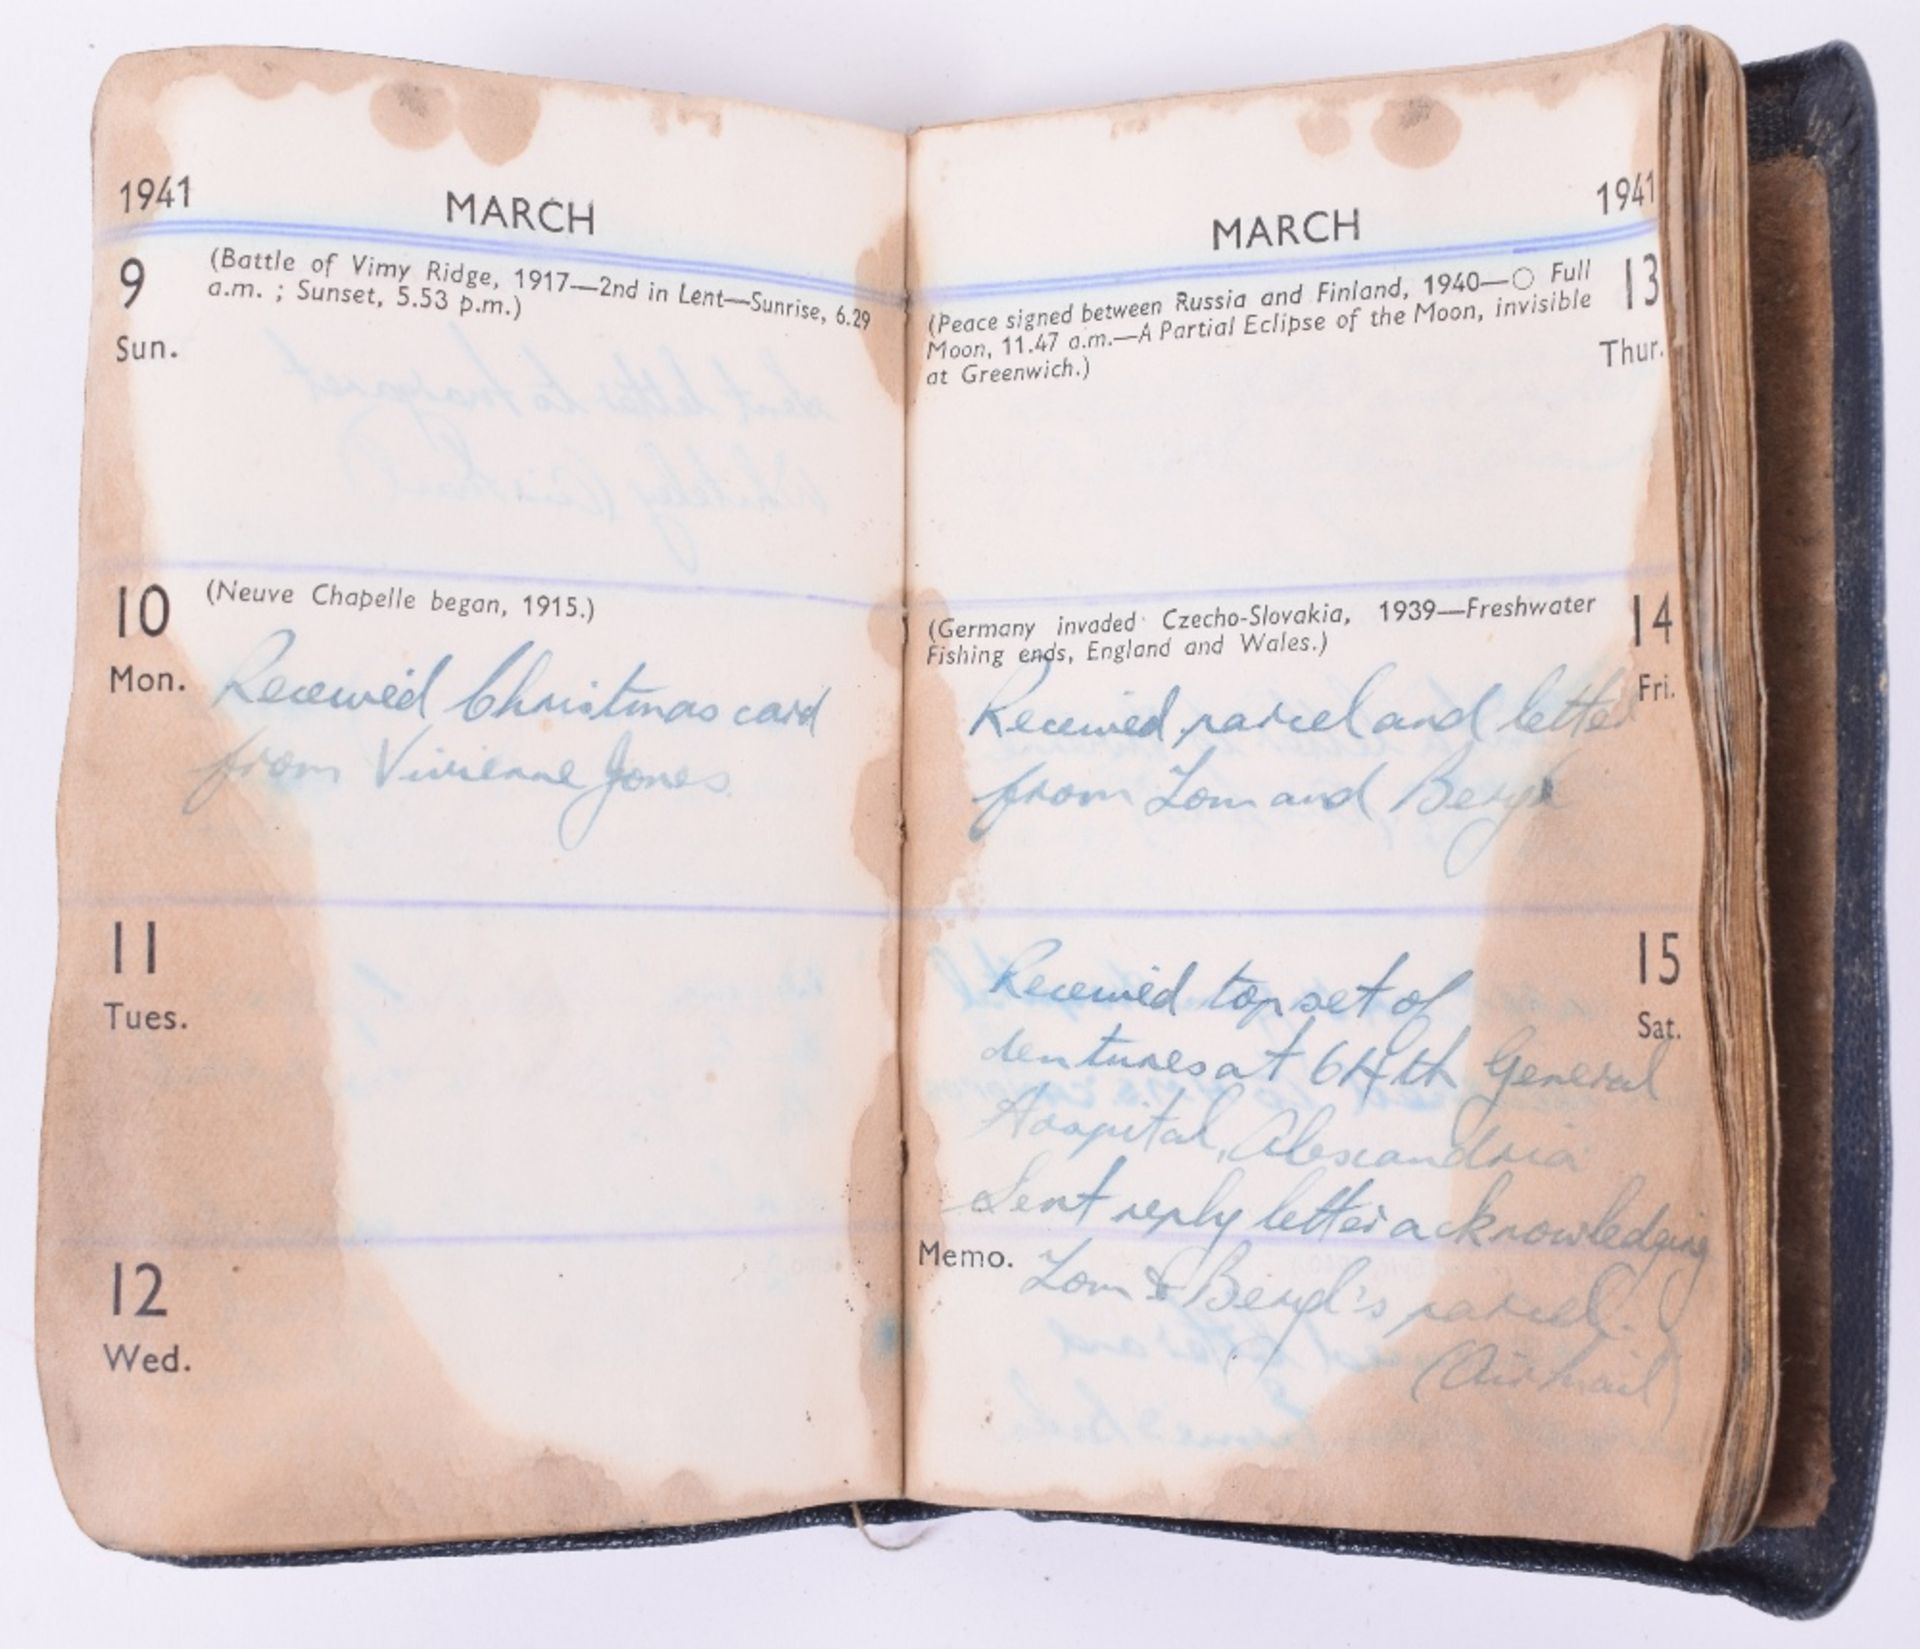 1941
MARCH
9
Sun.
(Battle of Vimy Ridge, 1917—2nd in Lent—Sunrise, 6.29
a.m. ; Sunset, 5.53 p.m.)
10
Mon.
(Neuve Chapelle began, 1915.)
Received Christmas card
from Vivienne Jones
11
Tues.
12
Wed.
MARCH
1941
(Peace signed between Russia and Finland, 1940—○ Full
Moon, 11.47 a.m.—A Partial Eclipse of the Moon, invisible
at Greenwich.)
13
Thur.
(Germany invaded Czecho-Slovakia, 1939—Freshwater
Fishing ends, England and Wales.)
14
Fri.
Received parcel and letter
from Tom and Beryl
15
Sat.
Received top set of
dentures at 64th General
Hospital, Alexandria
Sent reply letter acknowledging
Memo.
Tom & Beryl's parcel.
(Air Mail)